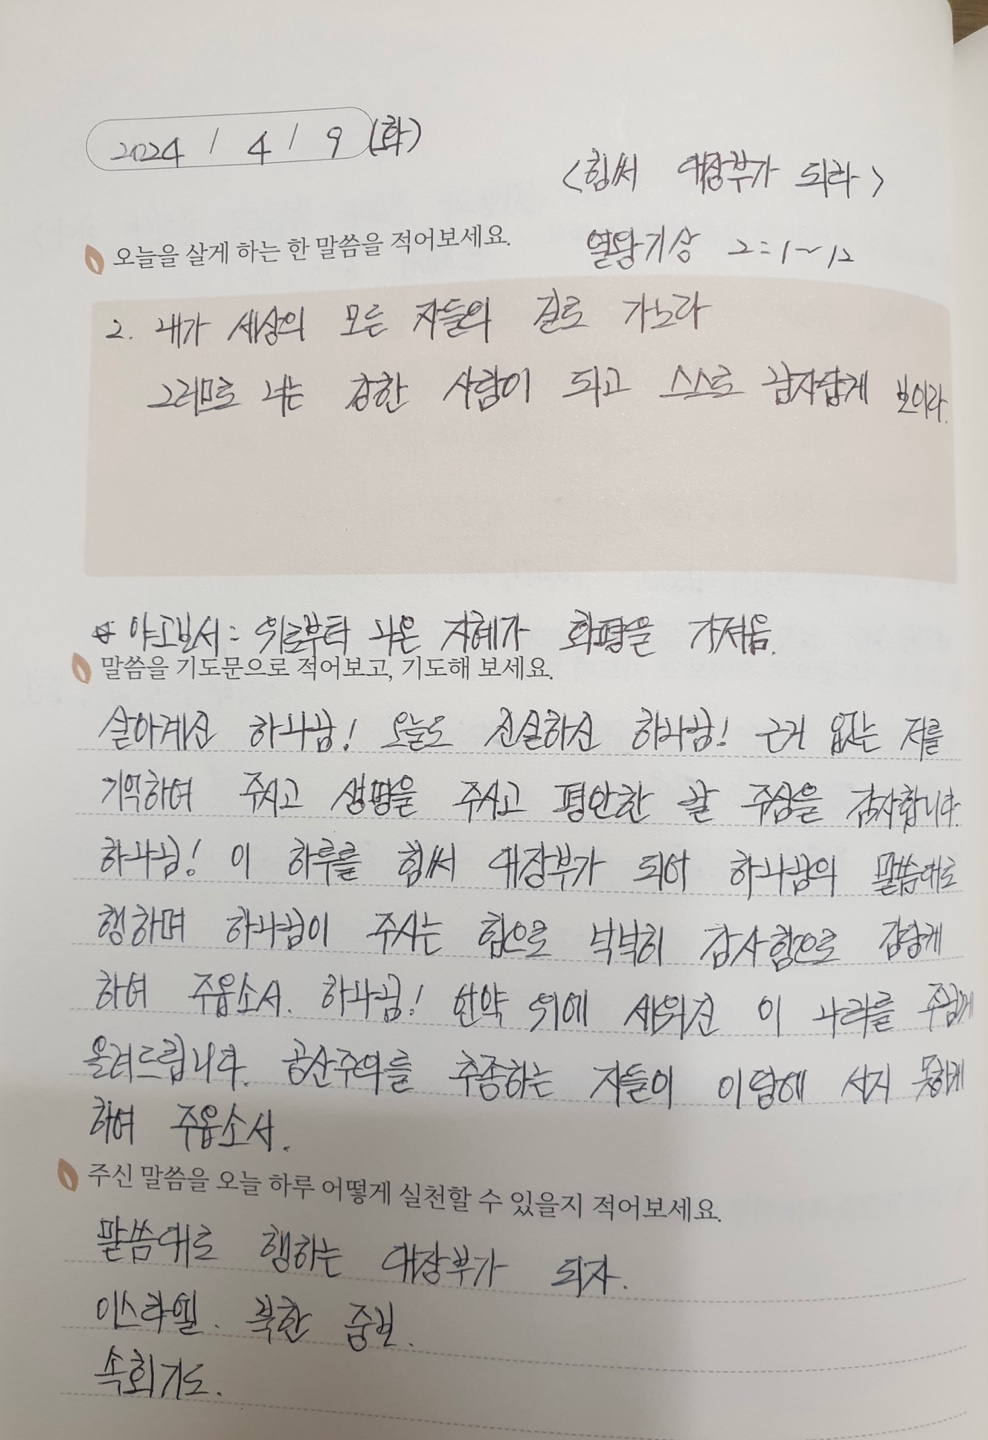 2024 / 4 / 9 (화)
<힘써 대장부가 되라>
오늘을 살게 하는 한 말씀을 적어보세요.
열왕기상 2:1~12
2. 내가 세상의 모든 자들의 길로 가노라
그러므로 너는 강한 사람이 되고 스스로 남자답게 보이라.
☆ 야고보서: 위로부터 나온 지혜가 화평을 가져옴.
말씀을 기도문으로 적어보고, 기도해 보세요.
살아계신 하나님! 오늘도 신실하신 하나님! 근거 없는 저를
기억하여 주시고 생명을 주시고 평안한 삶 주심을 감사합니다.
하나님! 이 하루를 힘써 대장부가 되어 하나님의 말씀대로
행하며 하나님이 주시는 힘으로 넉넉히 감사함으로 감당케
하여 주옵소서. 하나님! 언약 위에 세워진 이 나라를 주님께
올려드립니다. 공산주의를 추종하는 자들이 이 땅에 서지 못하게
하여 주옵소서.
주신 말씀을 오늘 하루 어떻게 실천할 수 있을지 적어보세요.
말씀대로 행하는 대장부가 되자.
이스라엘. 북한 중보.
속회기도.